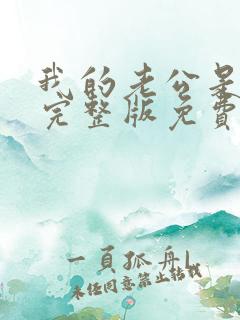 我的老公
完整版免费
一頁孤舟L
未经同意禁止转载